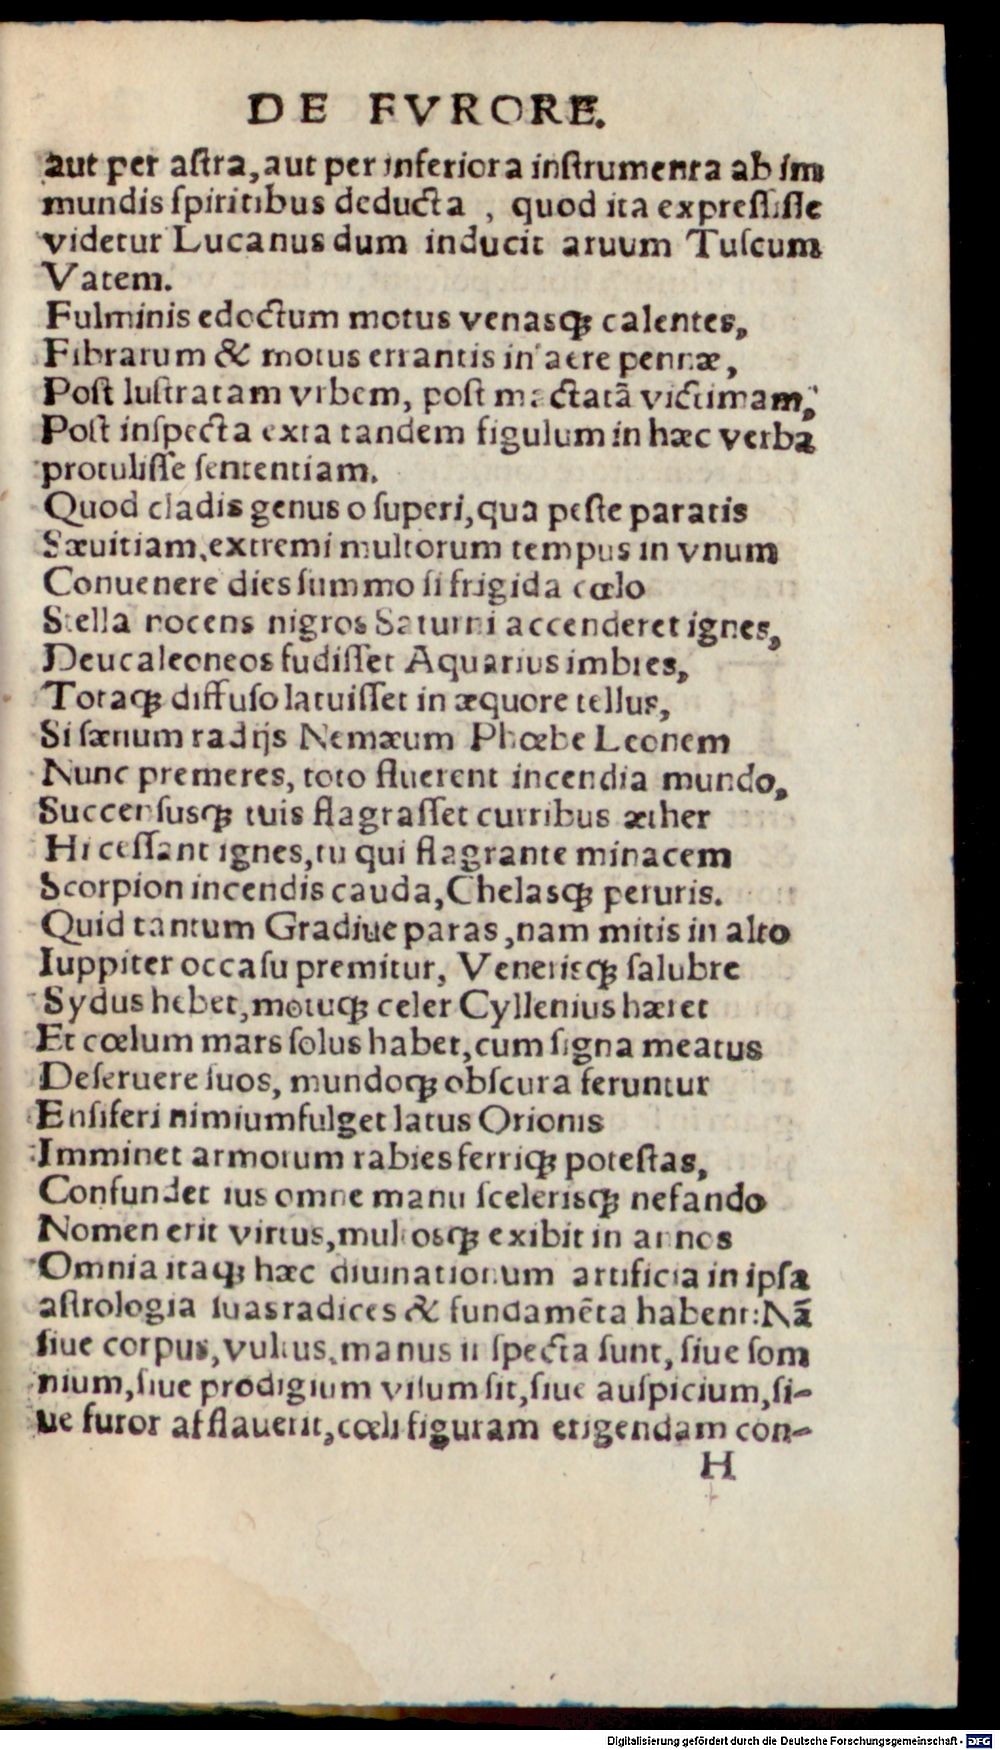 DE FVRORE.
aut per aſtra, aut per inferiora inſtrumenta ab im
mundis ſpiritibus deducta , quod ita expreſſiſſe
videtur Lucanus dum inducit aruum Tuſcum
Vatem.
Fulminis edoctum motus venasq; calentes,
Fibrarum & motus errantis in aere pennæ,
Poſt luſtratam vrbem, poſt mactatā victimam,
Poſt inſpecta exta tandem figulum in hæc verba
protuliſſe ſententiam.
Quod cladis genus o ſuperi, qua peſte paratis
Sæuitiam, extremi multorum tempus in vnum
Conuenere dies ſummo ſi frigida cœlo
Stella nocens nigros Saturni accenderet ignes,
Deucaleoneos fudiſſet Aquarius imbres,
Totaq; diffuſo latuiſſet in æquore tellus,
Si ſæuum radijs Nemæum Phœbe Leonem
Nunc premeres, toto fluerent incendia mundo,
Succenſusq; tuis flagraſſet curribus æther
Hi ceſſant ignes, tu qui flagrante minacem
Scorpion incendis cauda, Chelasq; peruris.
Quid tantum Gradiue paras, nam mitis in alto
Iuppiter occaſu premitur, Venerisq; ſalubre
Sydus hebet, motuq; celer Cyllenius hæret
Et cœlum mars ſolus habet, cum ſigna meatus
Deſeruere ſuos, mundoq; obſcura feruntur
Enſiferi nimiumfulget latus Orionis
Imminet armorum rabies ferriq; poteſtas,
Confundet ius omne manu ſcelerisq; nefando
Nomen erit virtus, multosq; exibit in annos
Omnia itaq; hæc diuinationum artificia in ipſa
aſtrologia ſuas radices & fundamēta habent: Nā
ſiue corpus, vultus, manus inſpecta ſunt, ſiue ſom
nium, ſiue prodigium viſum ſit, ſiue auſpicium, ſi-
ue furor afflauerit, cœli figuram erigendam con-
H
Digitalisierung gefördert durch die Deutsche Forschungsgemeinschaft - DFG